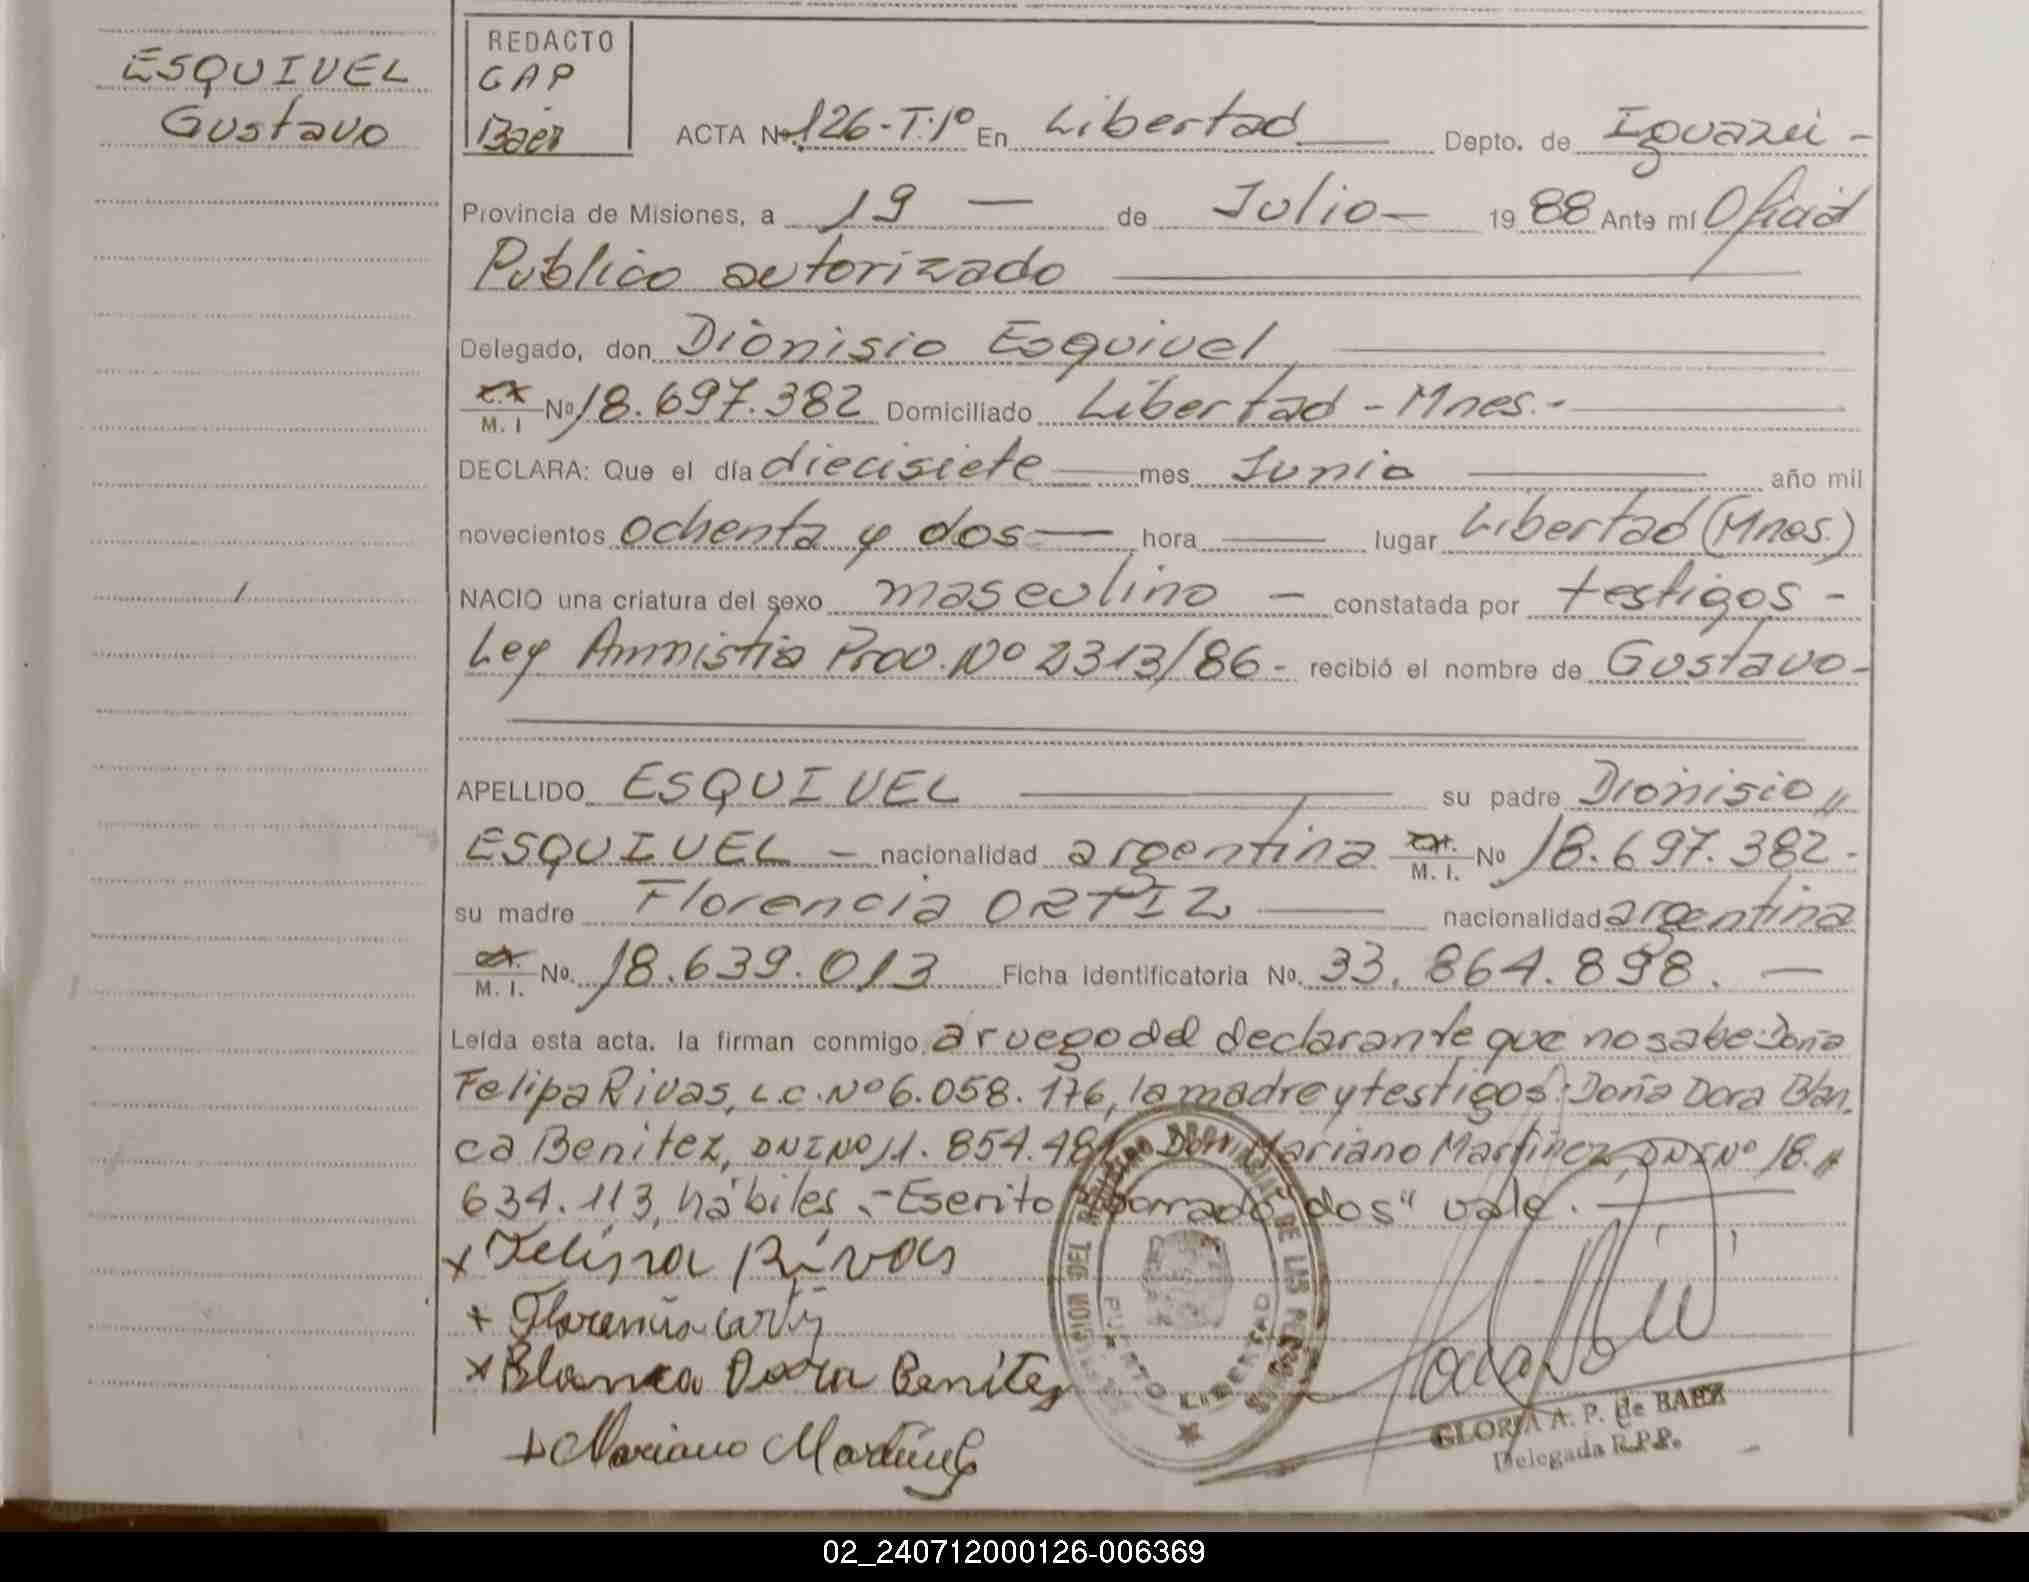 ESQUIVEL
Gustavo
REDACTO
GAP
Baez
ACTA Nº 126-T.1º En Libertad Depto. de Iguazú -
Provincia de Misiones, a 19 — de Julio — 1988 Ante mí Oficial
Publico autorizado
Delegado, don Dionisio Esquivel
M. I Nº 18.697.382 Domiciliado Libertad - Mnes. -
DECLARA: Que el día diecisiete mes Junio año mil
novecientos ochenta y dos hora lugar Libertad (Mnes.)
NACIO una criatura del sexo masculino - constatada por testigos -
Ley Amnistia Prov. Nº 2313/86 - recibió el nombre de Gustavo -
APELLIDO ESQUIVEL su padre Dionisio "
ESQUIVEL - nacionalidad argentina M. I. Nº 18.697.382 -
su madre Florencia ORTIZ nacionalidad argentina
M. I. No. 18.639.013 Ficha identificatoria No. 33.864.898. —
Leída esta acta. la firman conmigo a ruego del declarante que no sabe: Doña
Felipa Rivas, L.C. Nº 6.058.176, la madre y testigos: Doña Dora Blan.
ca Benitez, DNI Nº 11.854.48 Don Mariano Martinez, DNI Nº 18. "
634.113, hábiles. - Escrito s/borrado "dos" vale. -
x Felipa Rivas
+ Florencia ortiz
x Blanca Dora Benitez
+ Mariano Martinez
PROVINCIAL DE LAS PERSONAS
PUERTO LIBERTAD
GLORIA A. P. de BAEZ
Delegada R.P.P.
02_240712000126-006369